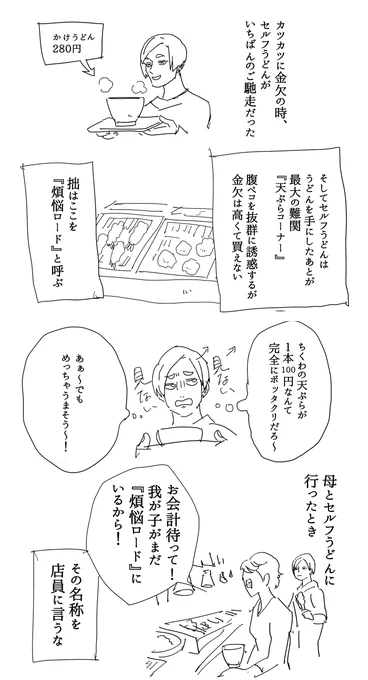 カツカツに金欠の時、
セルフうどんが
いちばんのご馳走だった
かけうどん
280円
そしてセルフうどんは
うどんを手にしたあとが
最大の難関
『天ぷらコーナー』
腹ペコを抜群に誘惑するが
金欠は高くて買えない
拙はここを
『煩悩ロード』と呼ぶ
ちくわの天ぷらが
1本100円なんて
完全にボッタクリだろ〜
見ない
見ない
あぁ〜でも
めっちゃうまそう〜!
母とセルフうどんに
行ったとき
お会計待って!
我が子がまだ
『煩悩ロード』に
いるから!
その名称を
店員に言うな